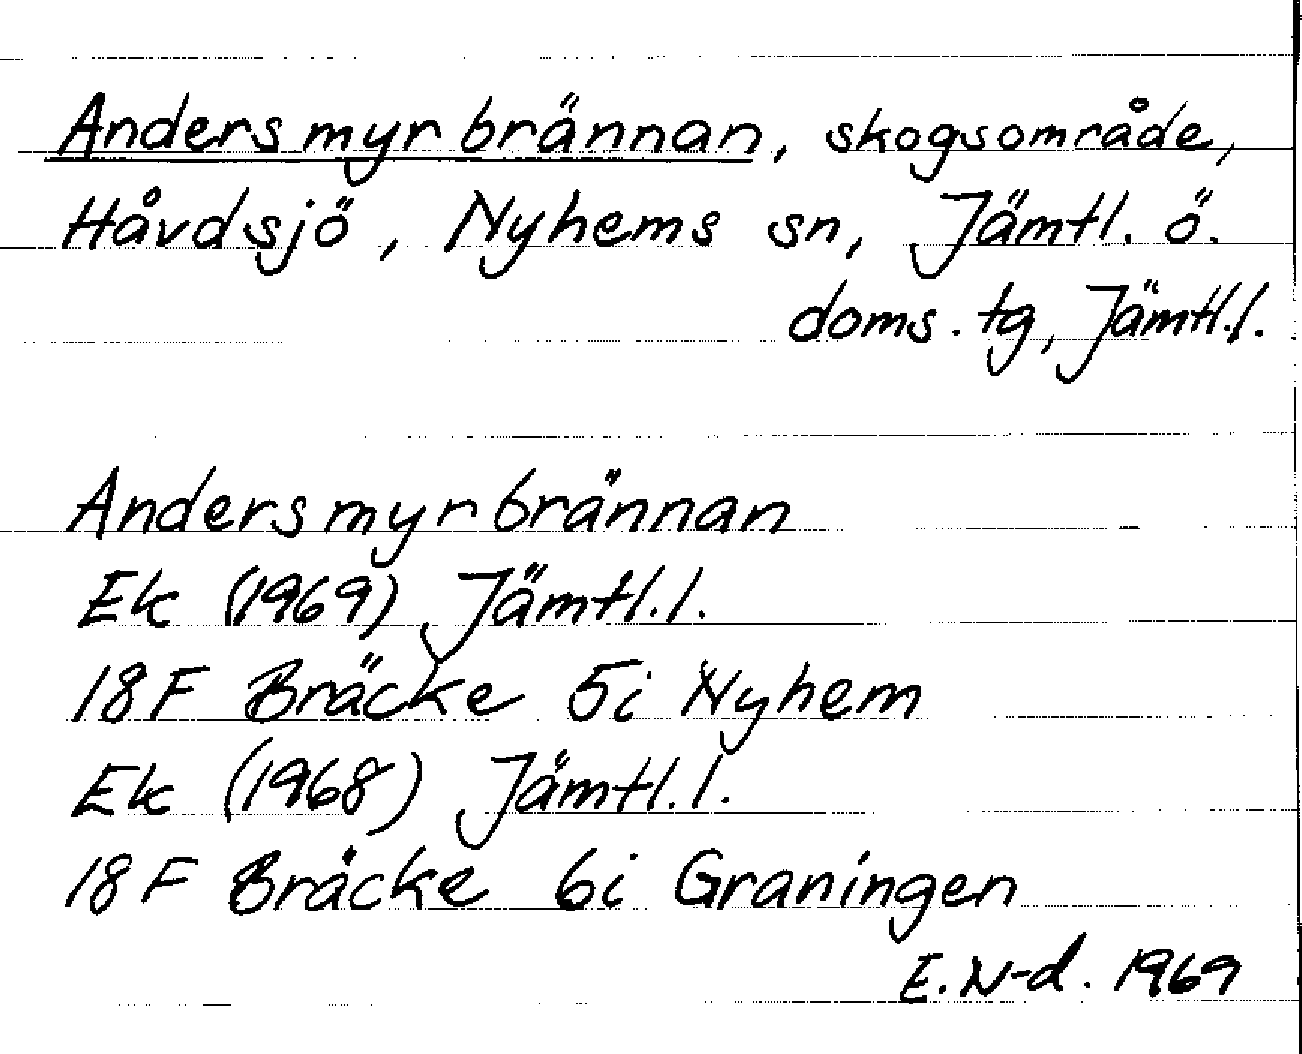 Andersmyrbrännan, skogsområde,
Håvdsjö, Nyhems sn, Jämtl. ö.
doms. tg, Jämtl.l.
Andersmyrbrännan
Ek (1969) Jämtl.l.
18F Bräcke 5i Nyhem
Ek (1968) Jämtl.l.
18F Bräcke 6i Graningen
E.N-d. 1969